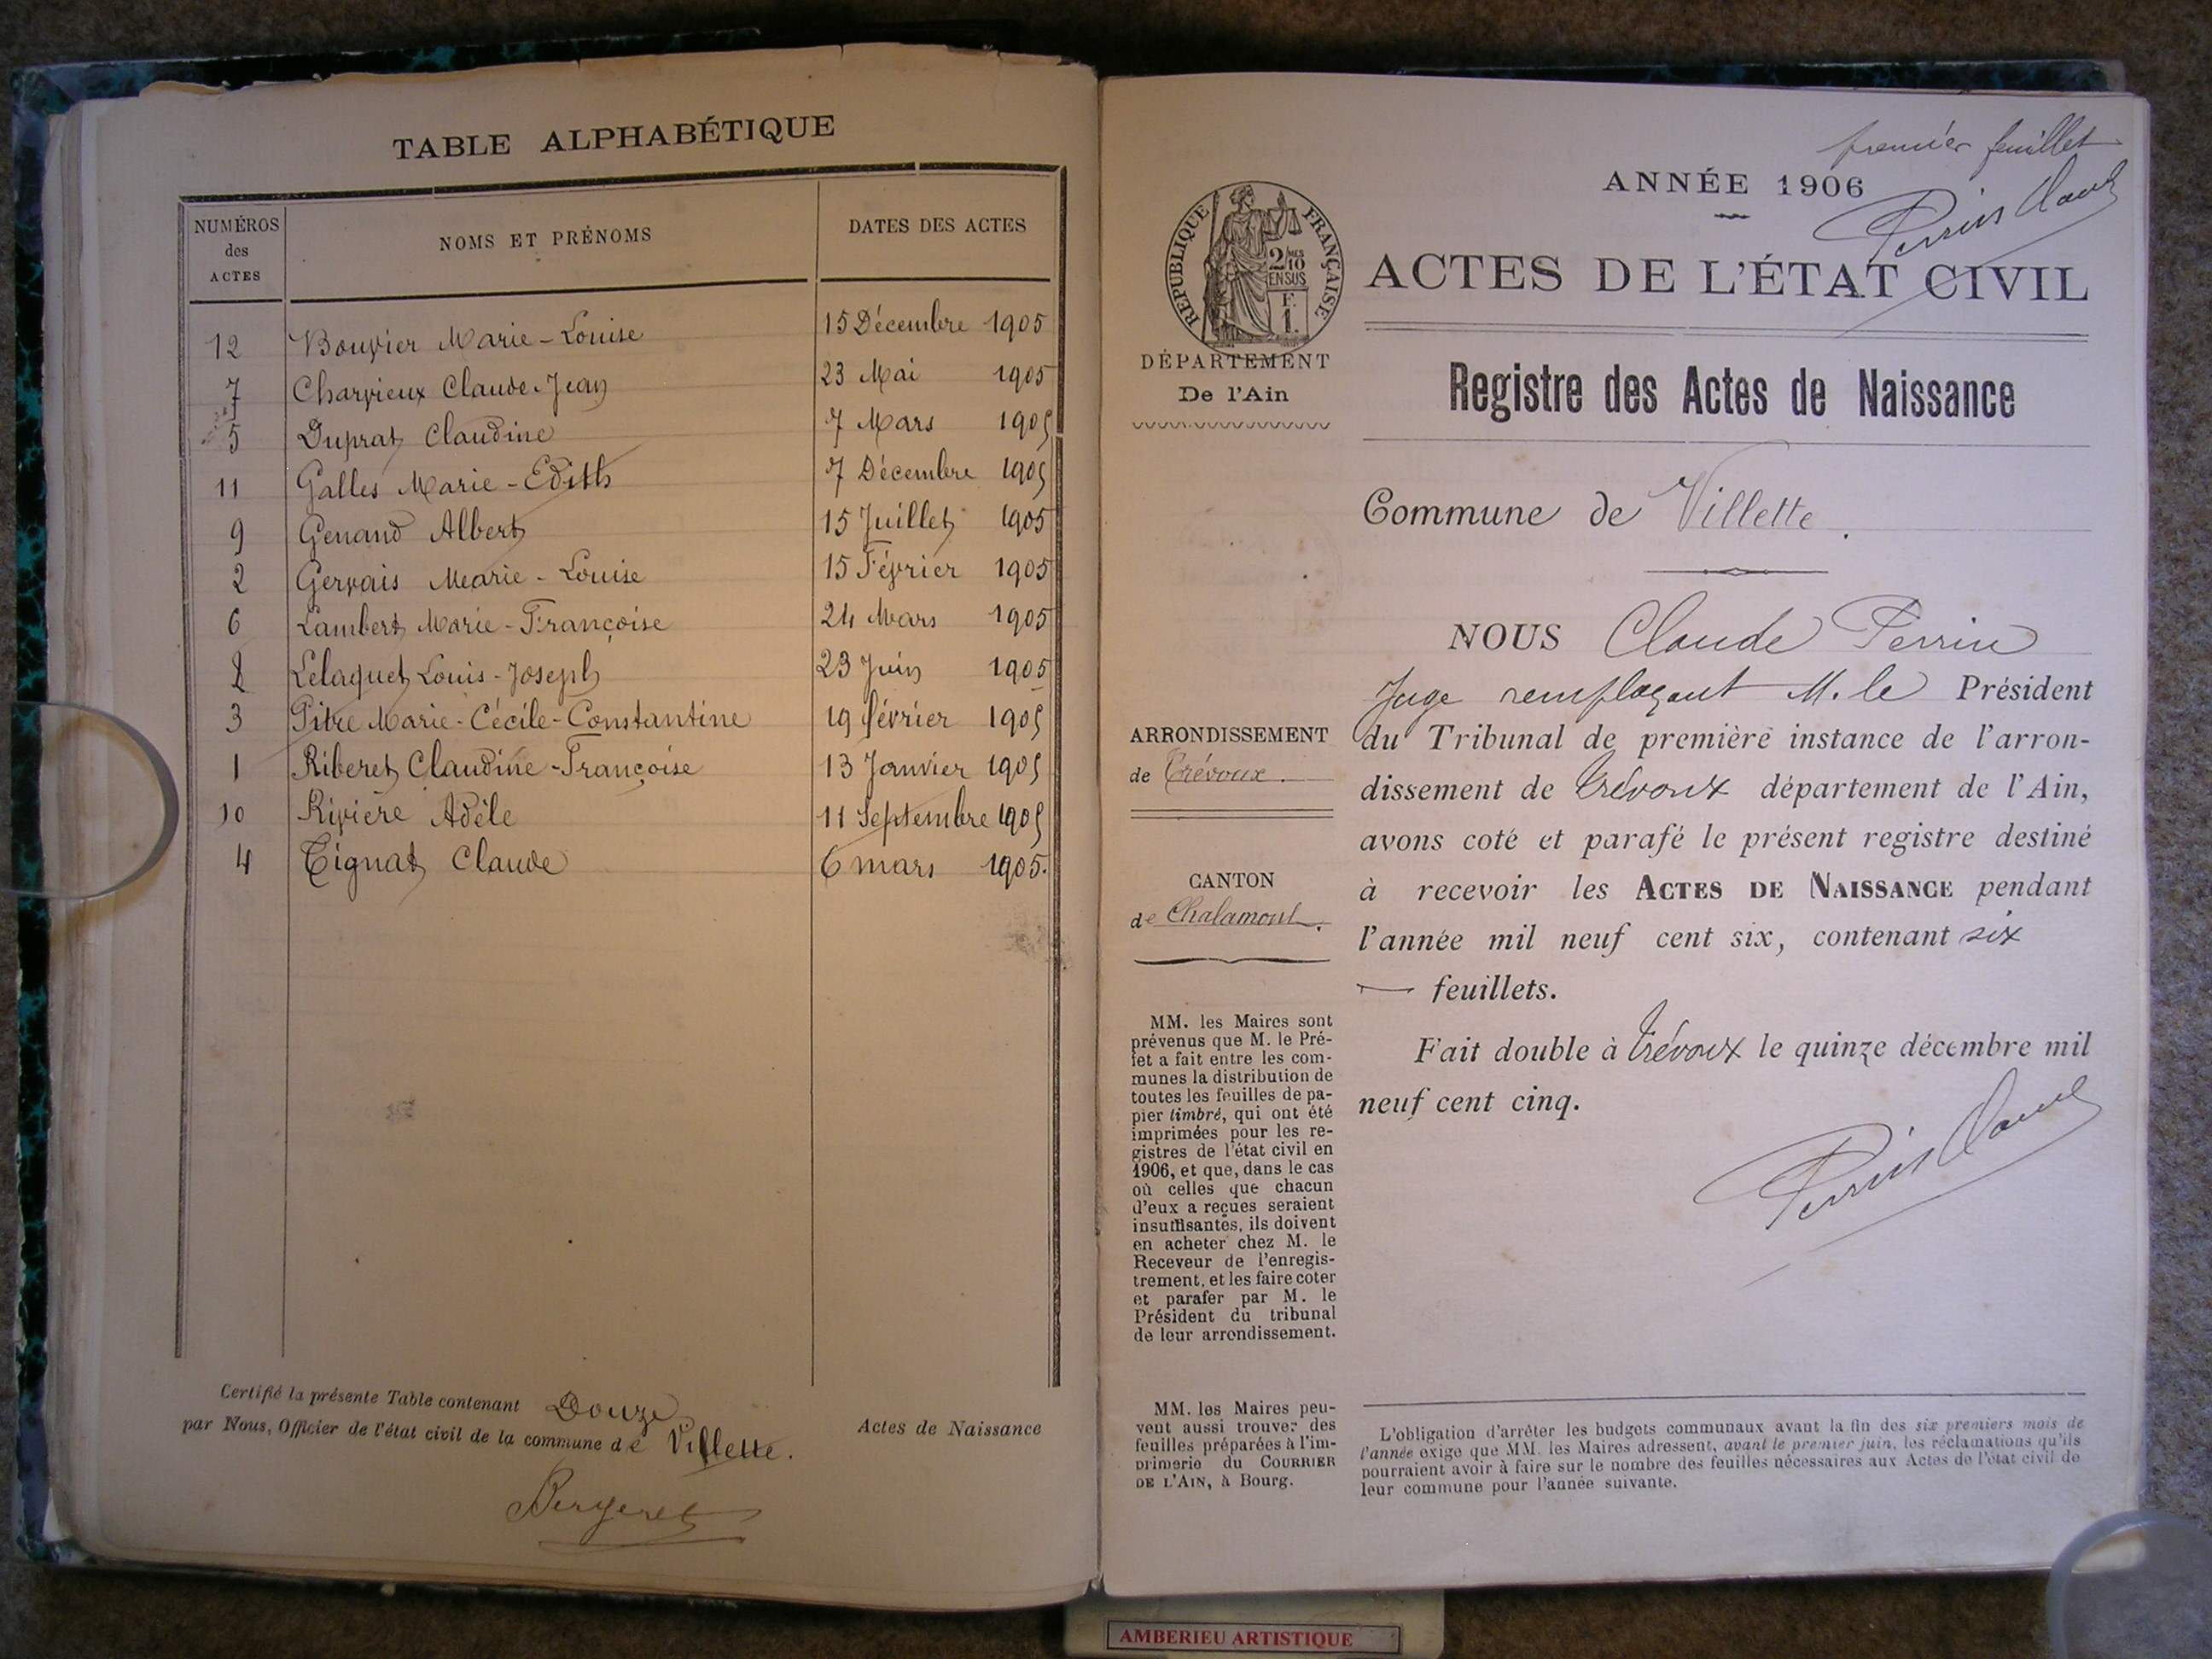 TABLE ALPHABÉTIQUE
NUMÉROS des ACTES
NOMS ET PRÉNOMS
DATES DES ACTES
12 Bouvier Marie-Louise 15 Décembre 1905
7 Charvieux Claude-Jean 23 Mai 1905
5 Duprat Claudine 7 Mars 1905
11 Galles Marie-Edith 7 Décembre 1905
9 Genand Albert 15 Juillet 1905
2 Gervais Marie-Louise 15 Février 1905
6 Lambert Marie-Françoise 24 Mars 1905
8 Lelaquet Louis-Joseph 23 Juin 1905
3 Pitre Marie-Cécile-Constantine 19 février 1905
1 Riberet Claudine-Françoise 13 Janvier 1905
10 Rivière Adèle 11 Septembre 1905
4 Tignat Claude 6 mars 1905.
Certifié la présente Table contenant Douze Actes de Naissance
par Nous, Officier de l'état civil de la commune de Villette.
Bergeret
premier feuillet
Perrin Claude
ANNÉE 1906
RÉPUBLIQUE FRANÇAISE
2/10MES
EN SUS
F.
1.
ACTES DE L'ÉTAT CIVIL
DÉPARTEMENT
De l'Ain
Registre des Actes de Naissance
Commune de Villette.
NOUS Claude Perrin
Juge remplaçant M. le Président
du Tribunal de première instance de l'arron-
dissement de Trévoux département de l'Ain,
avons coté et parafé le présent registre destiné
à recevoir les ACTES DE NAISSANCE pendant
l'année mil neuf cent six, contenant six
— feuillets.
Fait double à Trévoux le quinze décembre mil
neuf cent cinq.
Perrin Claude
ARRONDISSEMENT
de Trévoux.
CANTON
de Chalamont.
MM. les Maires sont
prévenus que M. le Pré-
fet a fait entre les com-
munes la distribution de
toutes les feuilles de pa-
pier timbré, qui ont été
imprimées pour les re-
gistres de l'état civil en
1906, et que, dans le cas
où celles que chacun
d'eux a reçues seraient
insuffisantes, ils doivent
en acheter chez M. le
Receveur de l'enregis-
trement, et les faire coter
et parafer par M. le
Président du tribunal
de leur arrondissement.
MM. les Maires peu-
vent aussi trouver des
feuilles préparées à l'im-
primerie du COURRIER
DE L'AIN, à Bourg.
L'obligation d'arrêter les budgets communaux avant la fin des six premiers mois de
l'année exige que MM. les Maires adressent, avant le premier juin, les réclamations qu'ils
pourraient avoir à faire sur le nombre des feuilles nécessaires aux Actes de l'état civil de
leur commune pour l'année suivante.
AMBERIEU ARTISTIQUE